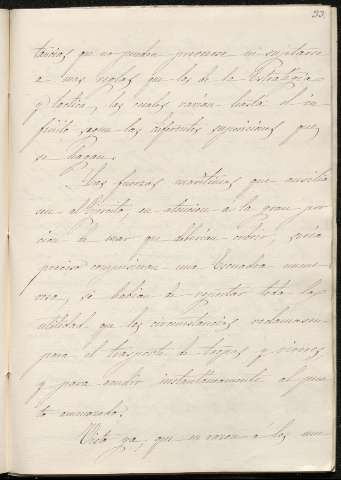 33.
tancias que no pueden preverse ni sujetarse
a mas reglas que las de la Estrategia
y tactica, las cuales varian hasta el in-
finito, segun las diferentes suposiciones que
se hagan.
Las fuerzas maritimas que auxilia
sen al Ejercito, en atencion á la gran por
cion de mar que deberian cubrir, seria
preciso compusieran una Escuadra nume
rosa, si habian de reportar toda la
utilidad que las circunstancias reclamasen
para el trasporte de tropas y viveres
y para acudir instantaneamente al pun
to amenazado.
Visto ya, que en razon á los